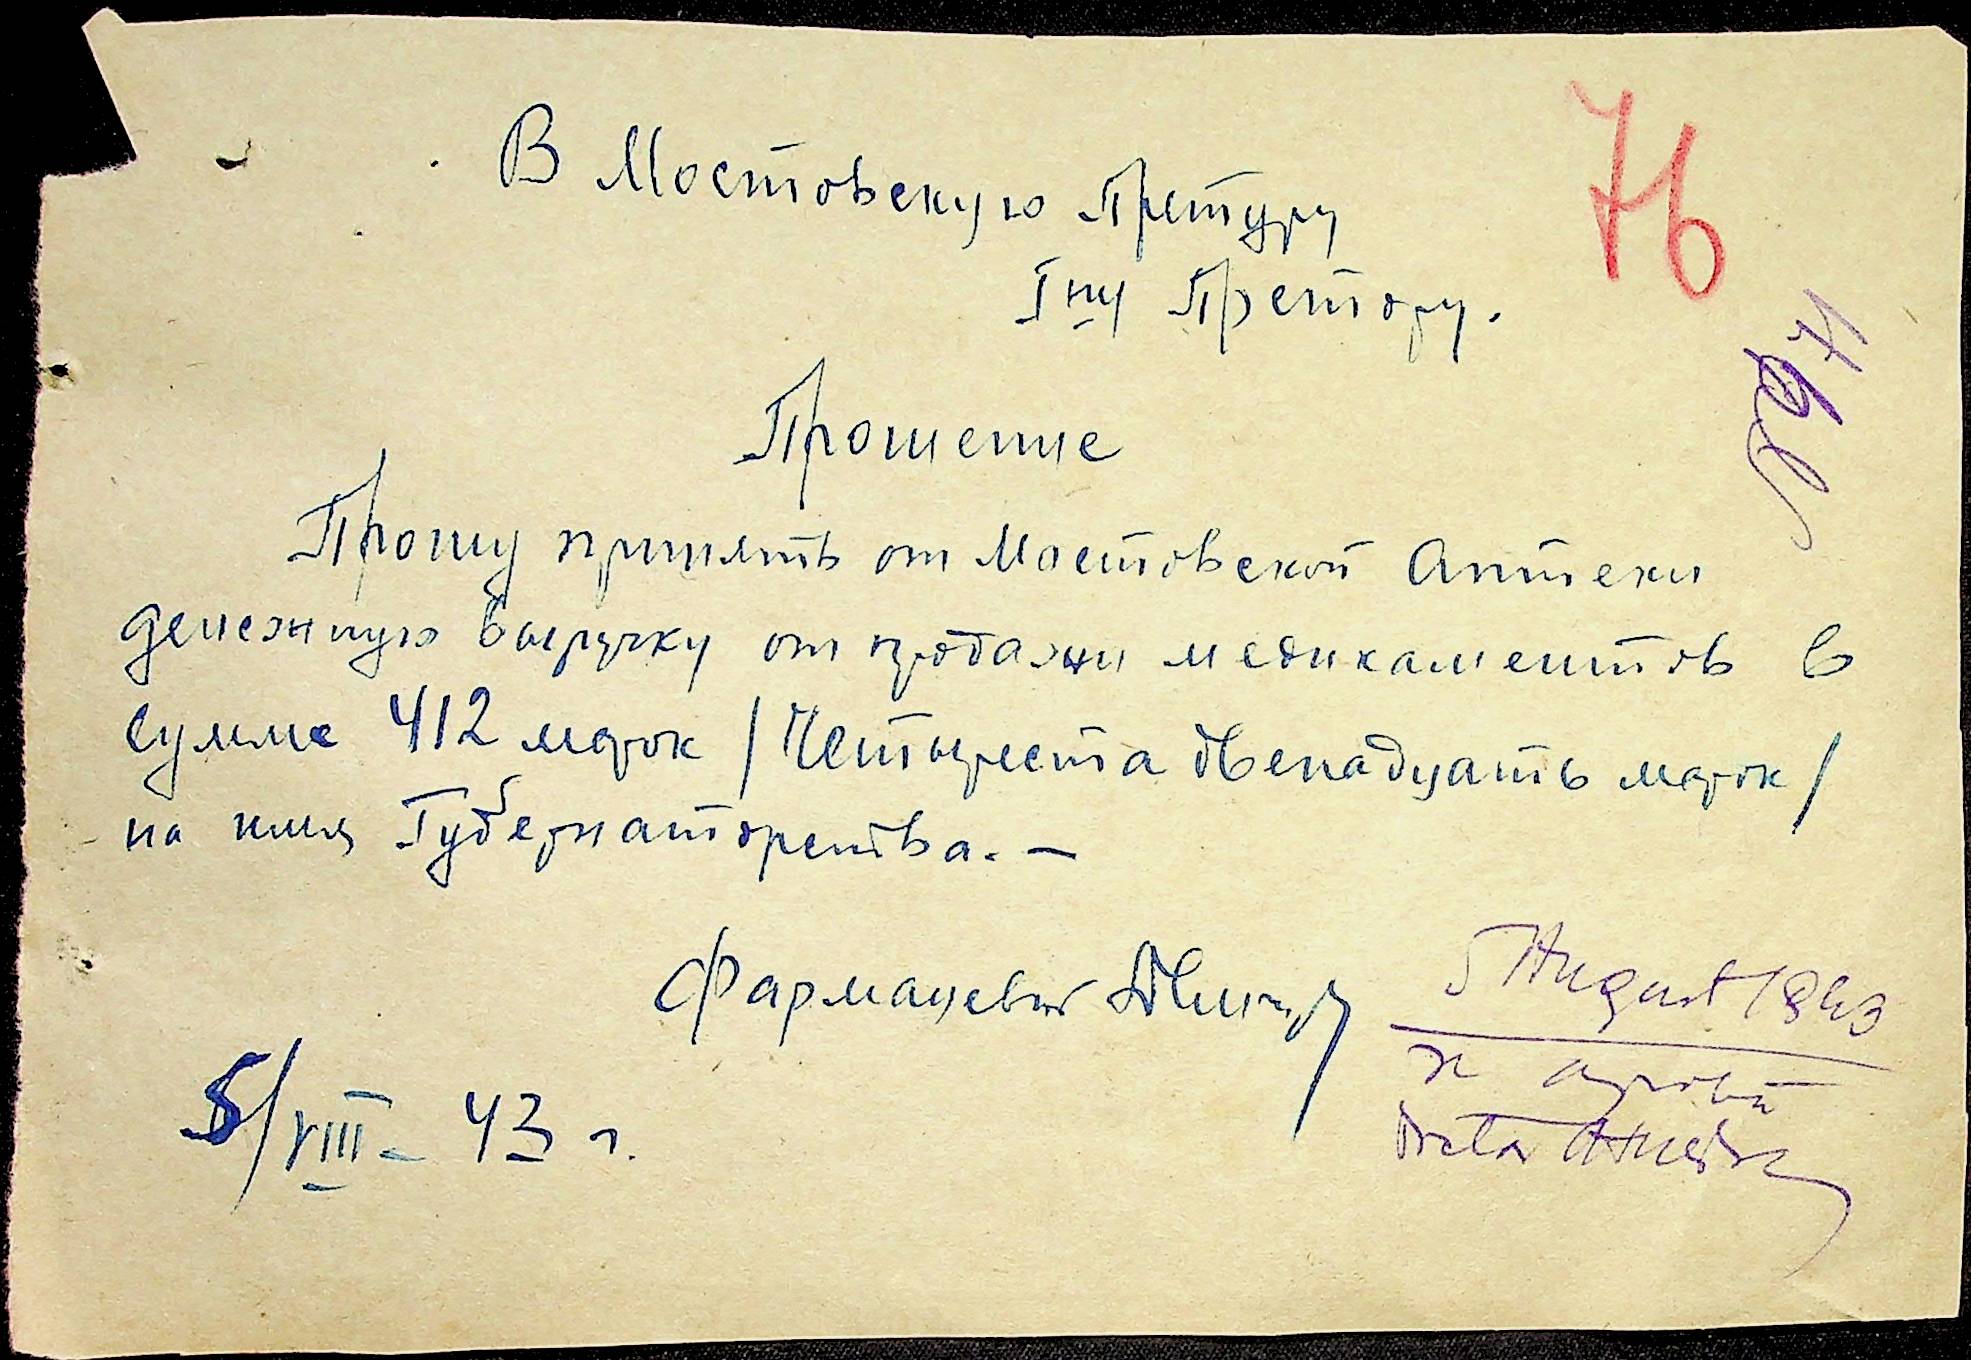 76
В Мостовскую Претуру
Гну Претору.
Прошение
Прошу принять от Мостовской Аптеки
денежную выручку от продажи медикаментов в
сумме 412 марок / Четыреста двенадцать марок /
на имя Губернаторства. -
Фармацевт
5 August 1943
5/VIII - 43 г.
Pretor